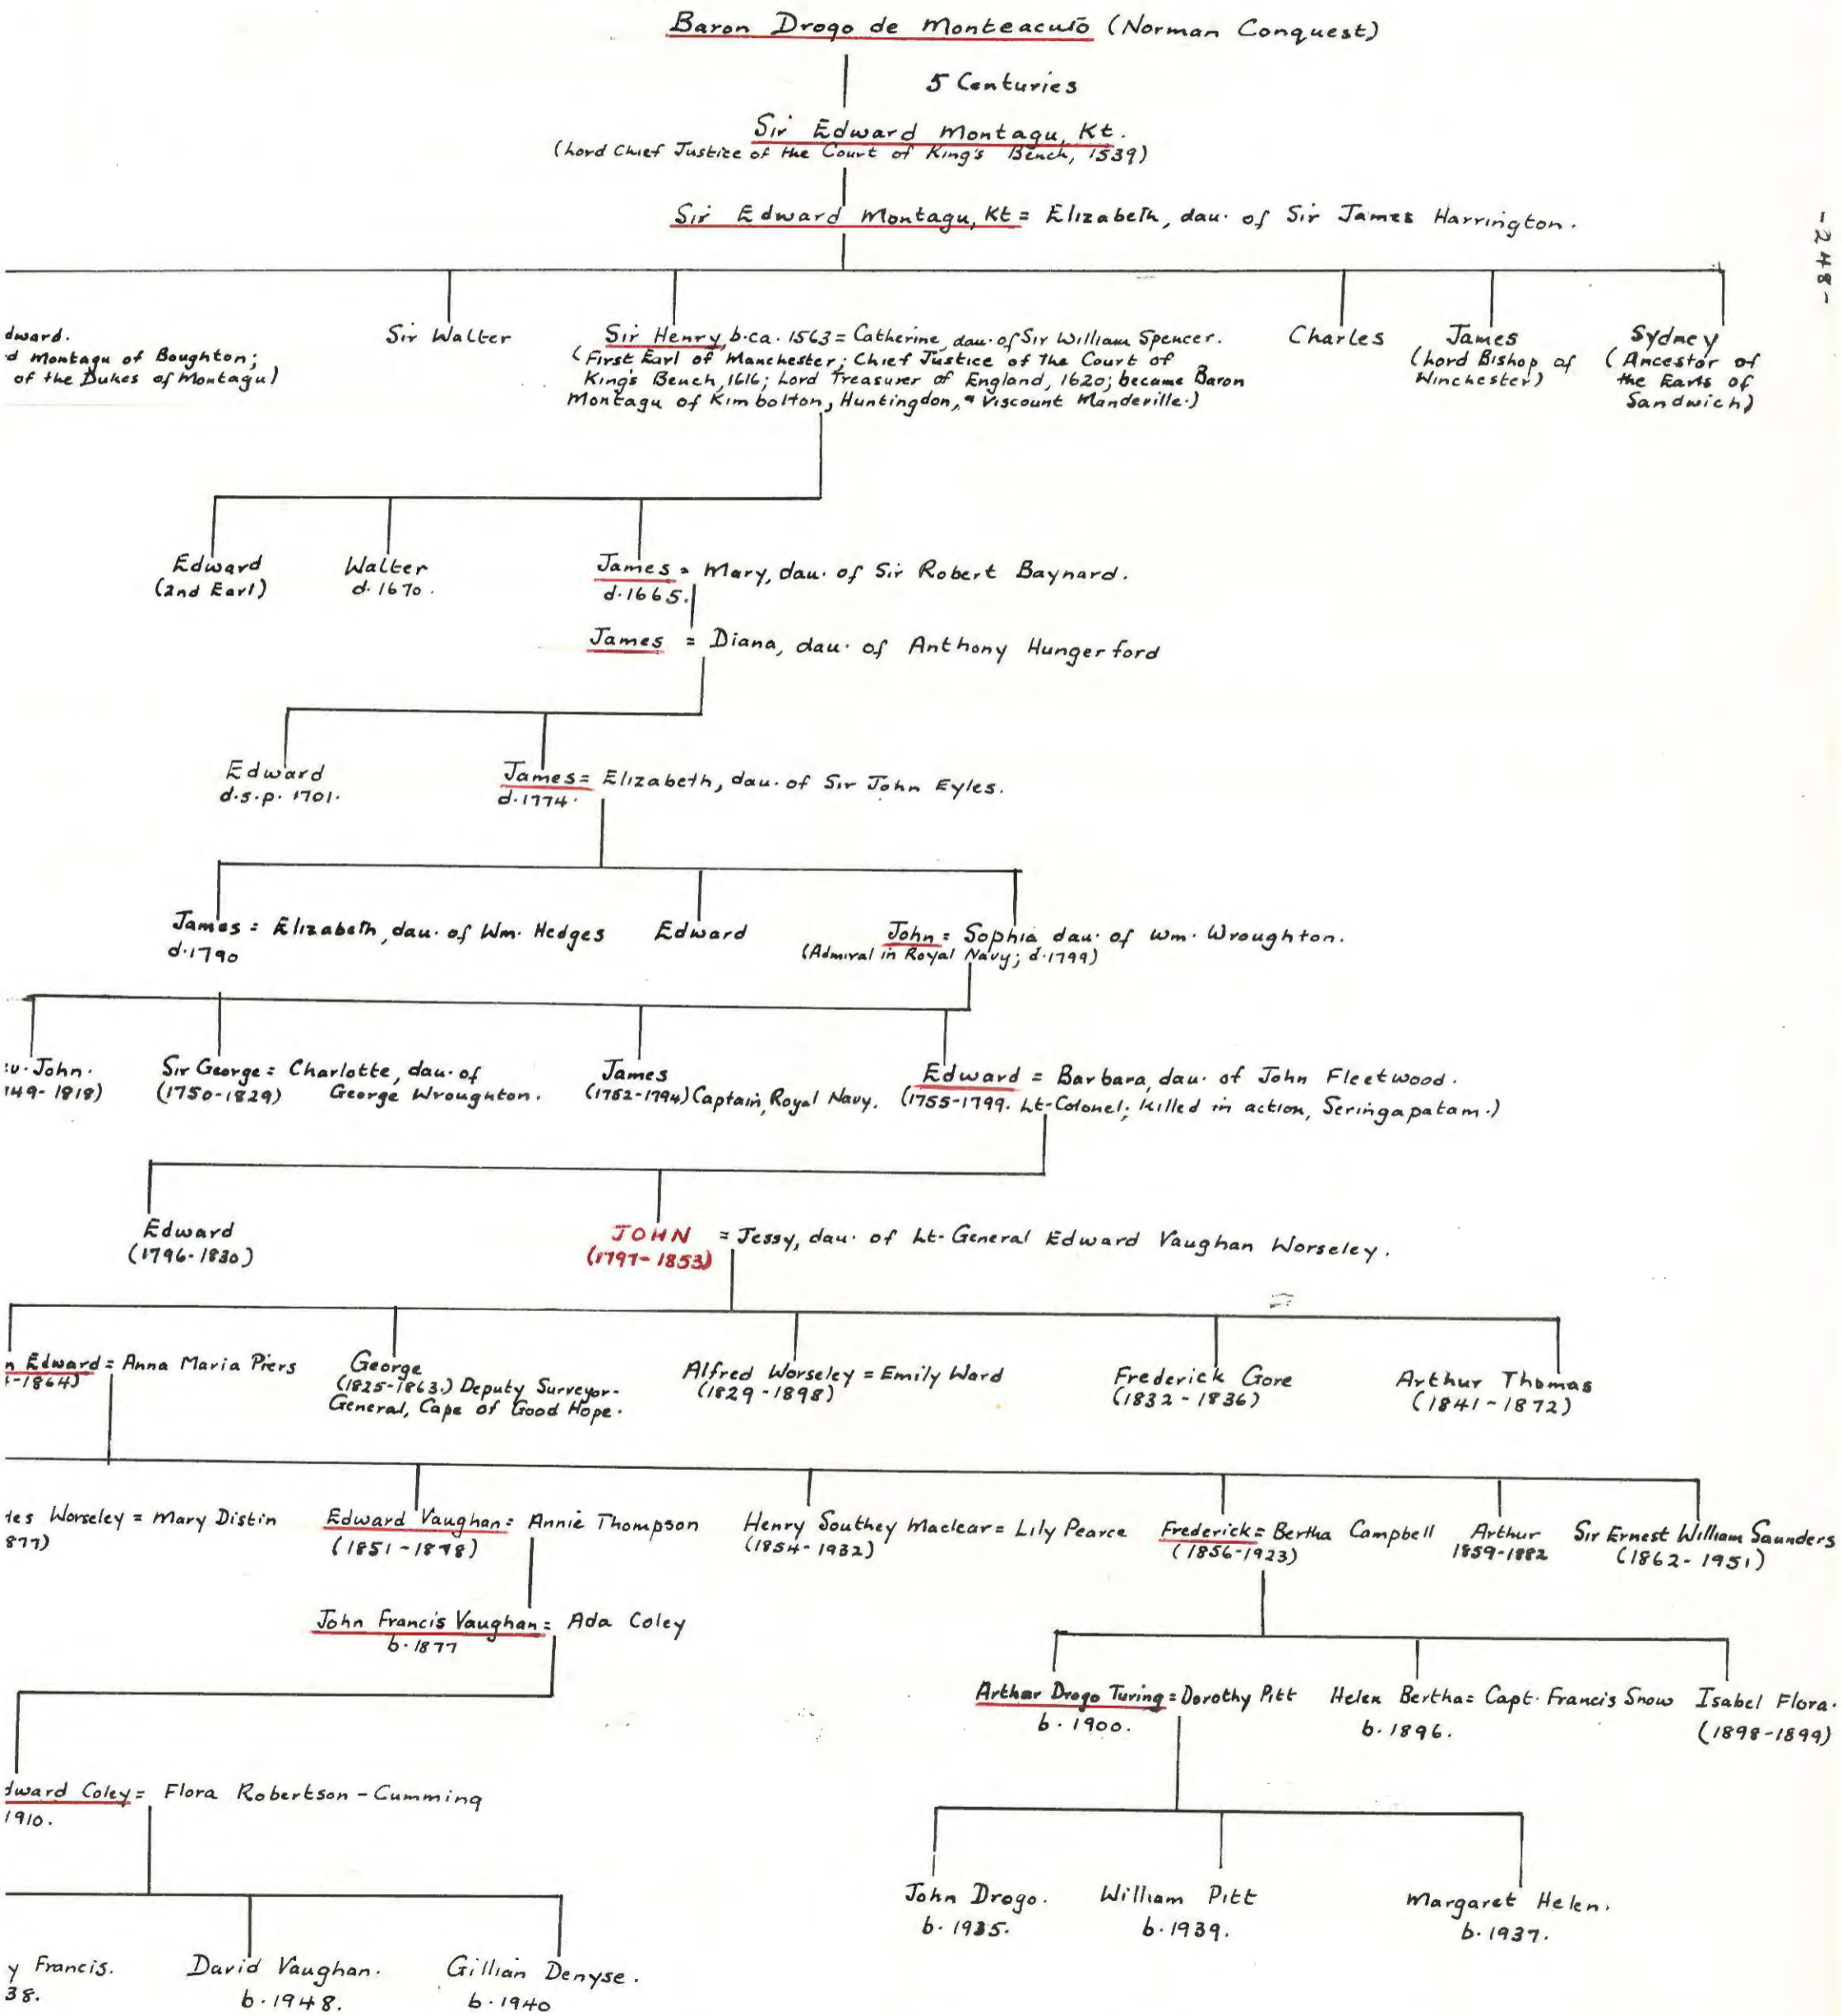 Baron Drogo de Monteacuto (Norman Conquest)
5 Centuries
Sir Edward Montagu, Kt.
(Lord Chief Justice of the Court of King's Bench, 1539)
Sir Edward Montagu, Kt = Elizabeth, dau. of Sir James Harrington.
-248-
dward.
d Montagu of Boughton;
of the Dukes of Montagu)
Sir Walter
Sir Henry, b.ca. 1563 = Catherine, dau. of Sir William Spencer.
(First Earl of Manchester; Chief Justice of the Court of
King's Bench, 1616; Lord Treasurer of England, 1620; became Baron
Montagu of Kimbolton, Huntingdon, & Viscount Manderville.)
Charles
James
(Lord Bishop of
Winchester)
Sydney
(Ancestor of
the Earls of
Sandwich)
Edward
(2nd Earl)
Walter
d. 1670.
James = Mary, dau. of Sir Robert Baynard.
d. 1665.
James = Diana, dau. of Anthony Hungerford
Edward
d.s.p. 1701.
James = Elizabeth, dau. of Sir John Eyles.
d. 1774.
James = Elizabeth, dau. of Wm. Hedges
d. 1790
Edward
John = Sophia, dau. of Wm. Wroughton.
(Admiral in Royal Navy; d. 1799)
v. John.
749-1818)
Sir George = Charlotte, dau. of
(1750-1829) George Wroughton.
James
(1752-1794) Captain, Royal Navy.
Edward = Barbara, dau. of John Fleetwood.
(1755-1799. Lt-Colonel; killed in action, Seringapatam.)
Edward
(1796-1830)
JOHN = Jessy, dau. of Lt-General Edward Vaughan Worseley.
(1797-1853)
n Edward = Anna Maria Piers
-1864)
George
(1825-1863.) Deputy Surveyor-
General, Cape of Good Hope.
Alfred Worseley = Emily Ward
(1829-1898)
Frederick Gore
(1832-1836)
Arthur Thomas
(1841-1872)
les Worseley = Mary Distin
877)
Edward Vaughan = Annie Thompson
(1851-1878)
Henry Southey Maclear = Lily Pearce
(1854-1932)
Frederick = Bertha Campbell
(1856-1923)
Arthur
1859-1882
Sir Ernest William Saunders
(1862-1951)
John Francis Vaughan = Ada Coley
b. 1877
Arthur Drogo Turing = Dorothy Pitt
b. 1900.
Helen Bertha = Capt. Francis Snow
b. 1896.
Isabel Flora.
(1898-1899)
dward Coley = Flora Robertson-Cumming
1910.
John Drogo.
b. 1935.
William Pitt
b. 1939.
Margaret Helen.
b. 1937.
y Francis.
38.
David Vaughan.
b. 1948.
Gillian Denyse.
b. 1940